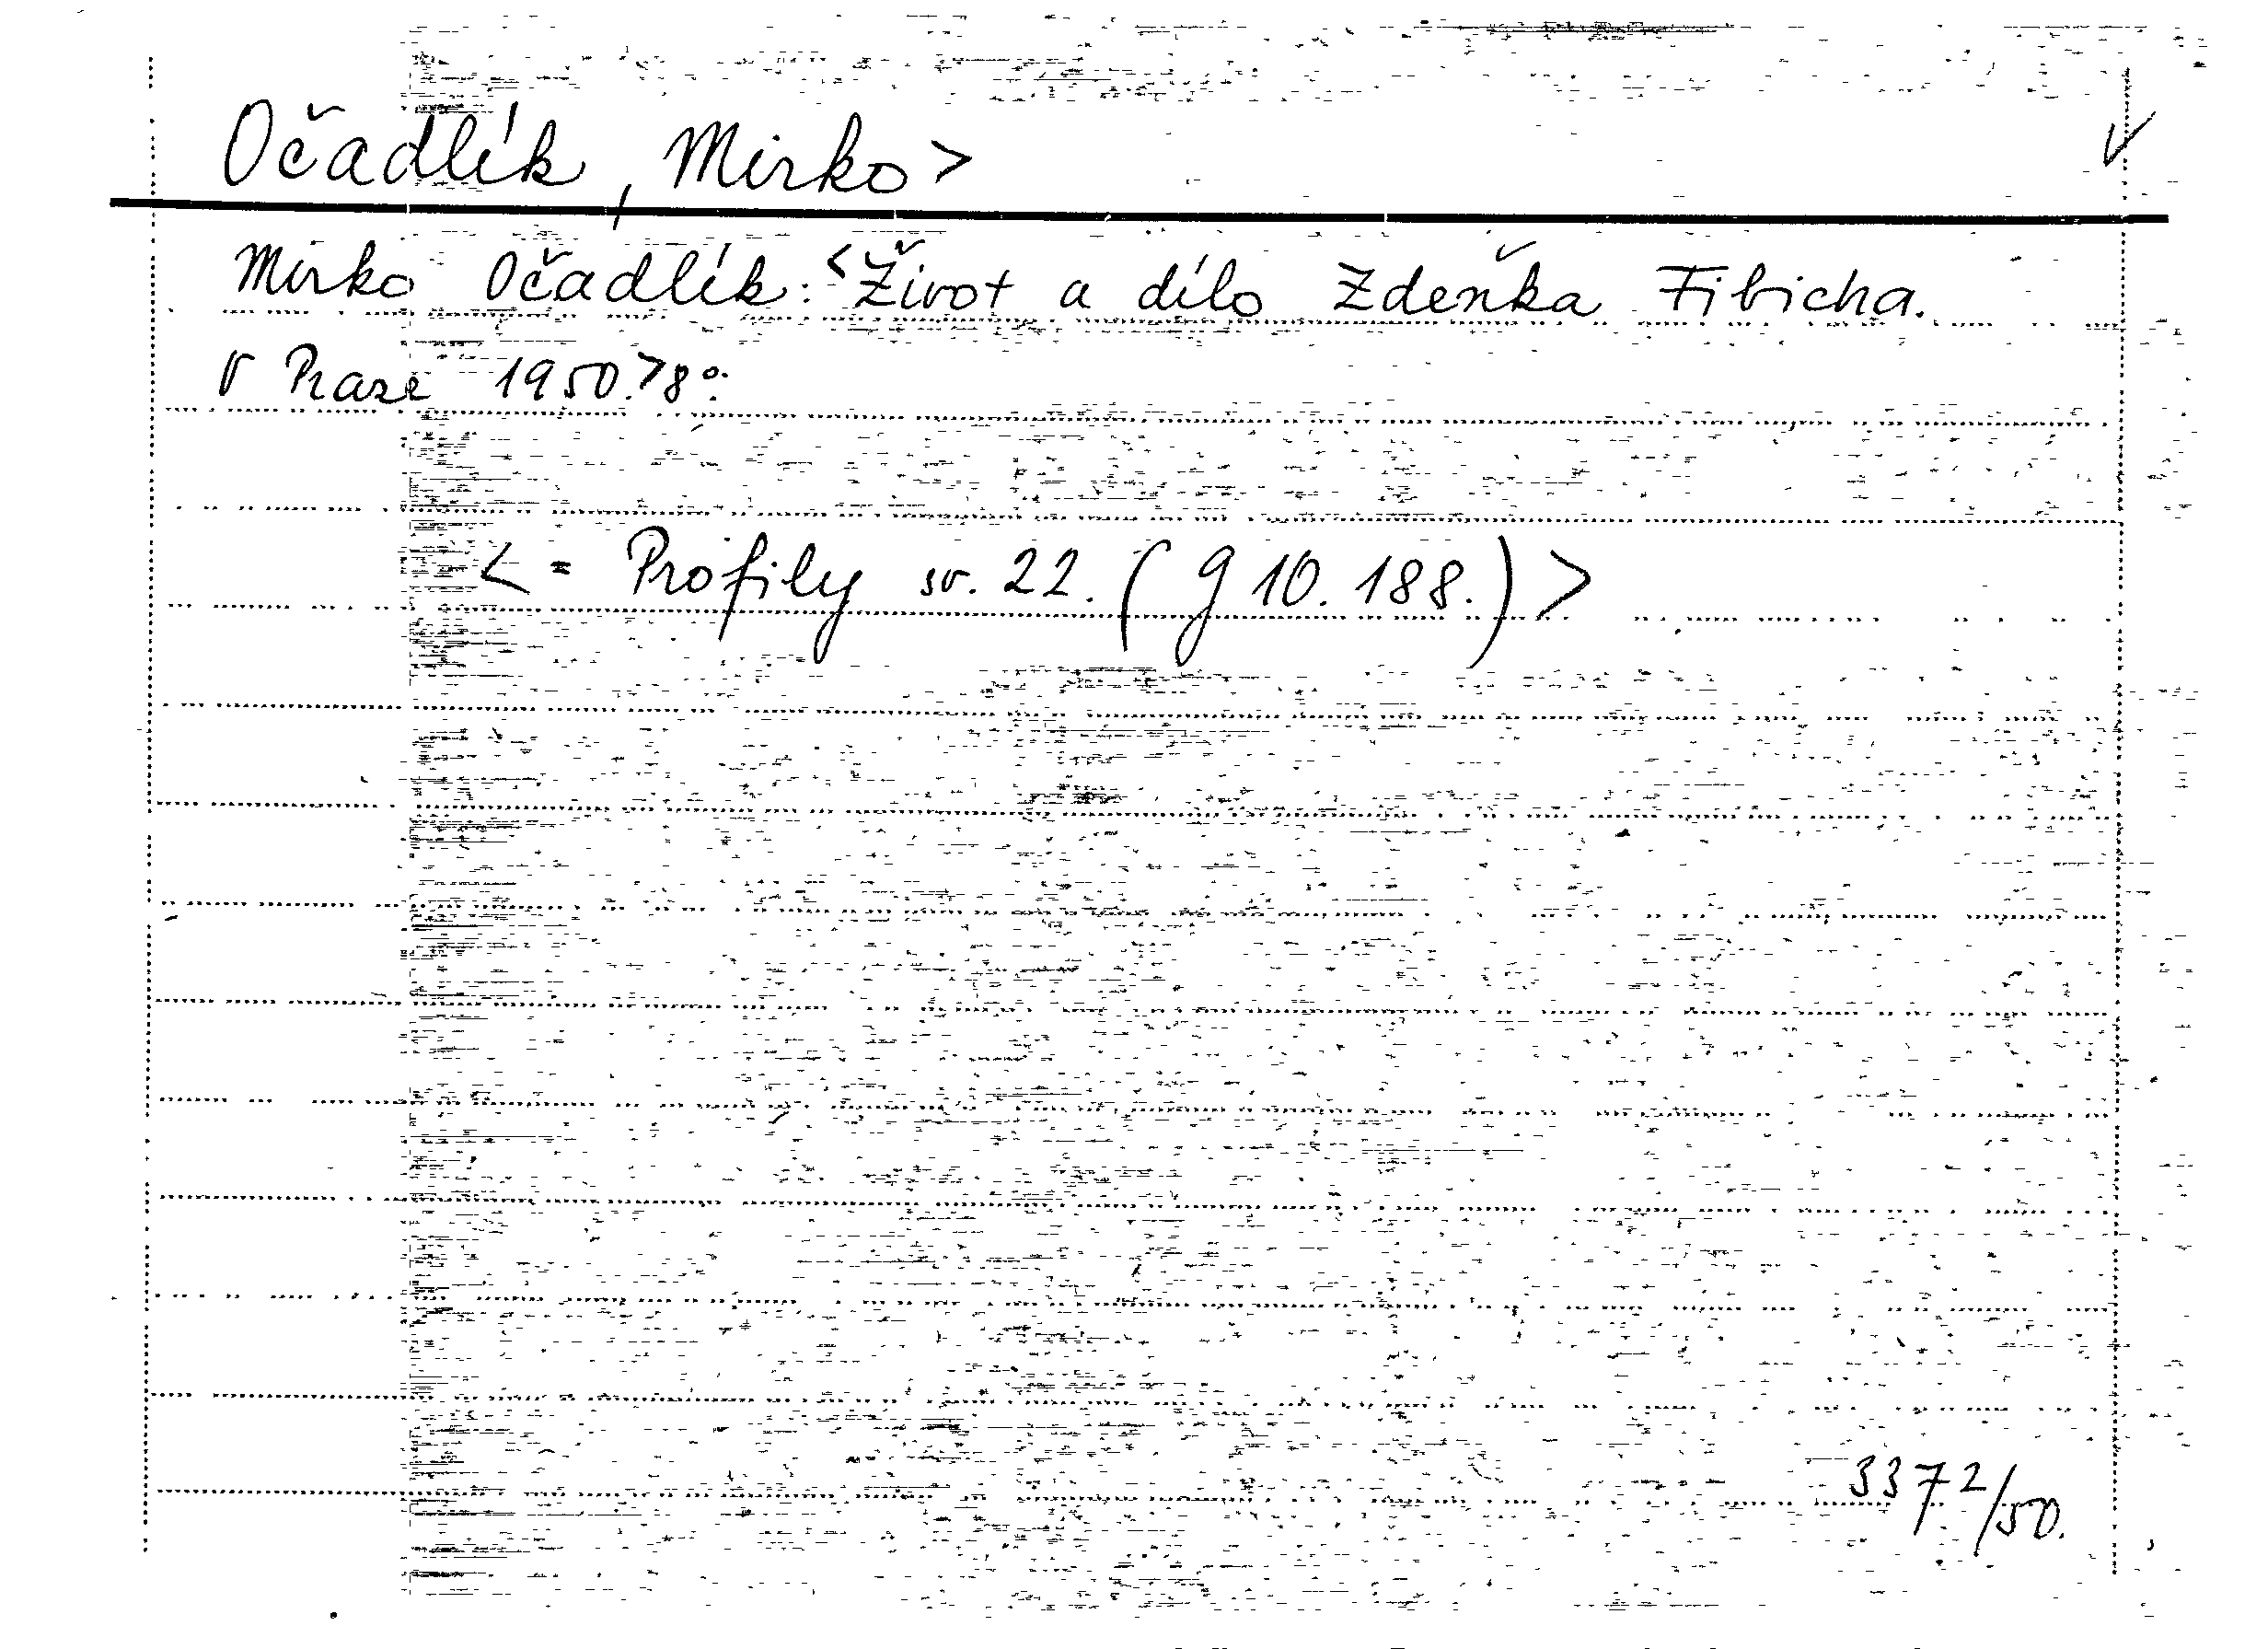 Očadlík, Mirko >
Mirko Očadlík: < Život a dílo Zdeňka Fibicha.
V Praze 1950. > 8°.
< = Profily sv. 22. (g 10. 188.) >
3372/50.